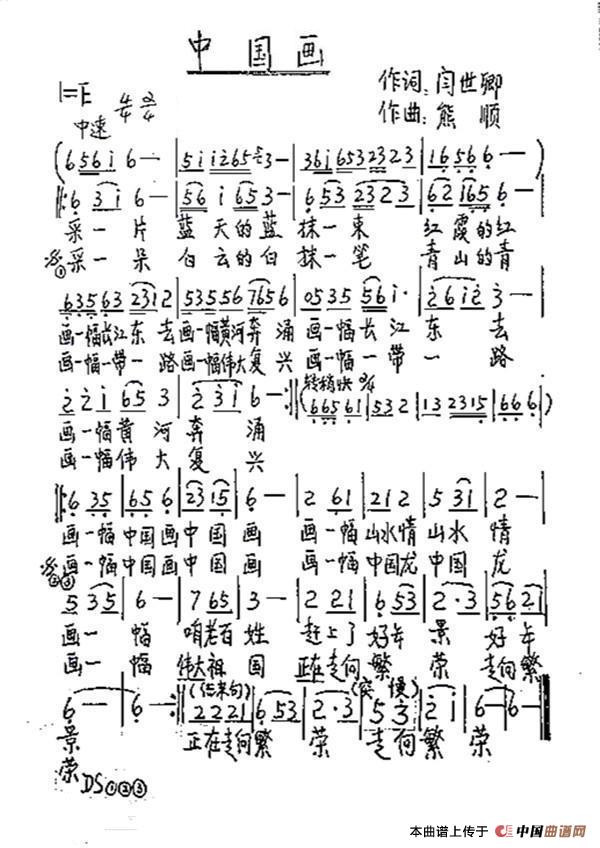 中国画
1=E 4/4 2/4
作词：闫世卿
中速
作曲：熊顺
(6561 6— | 511265 3— | 361 6532323 | 1656 6—)
‖: 6 31 6— | 56 1 65 3— | 6 53 2323 | 62 165 6— |
采一片 蓝天的蓝 抹一束 红霞的红
采一朵 白云的白 抹一笔 青山的青
画一幅长江东去画一幅黄河奔涌 画一幅长江东去
画一幅一带一路画一幅伟大复兴 画一幅一带一路
2 21 65 3 | 2 231 6— :‖
转稍快 2/4
(66561 | 532 | 13 2315 | 666)
画一幅黄河奔涌
画一幅伟大复兴
‖: 6 35 | 656 | 2315 | 6— | 2 61 | 212 | 5 31 | 2— |
画一幅中国画中国画 画一幅山水情山水情
画一幅中国画中国画 画一幅中国龙中国龙
5 335 | 6— | 7 65 | 3— | 2 221 | 6 53 | 2·3 | 5621 |
画一幅咱老百姓 赶上了好年景好年
画一幅伟大祖国 正在走向繁荣走向繁
(结束句) (突慢)
6— | 6— :‖ 2221 | 653 | 2·3 | 5 3 | 2 1 | 6— | 6— ‖
景 正在走向繁荣走向繁荣
荣
DS①②③
本曲谱上传于 中国曲谱网